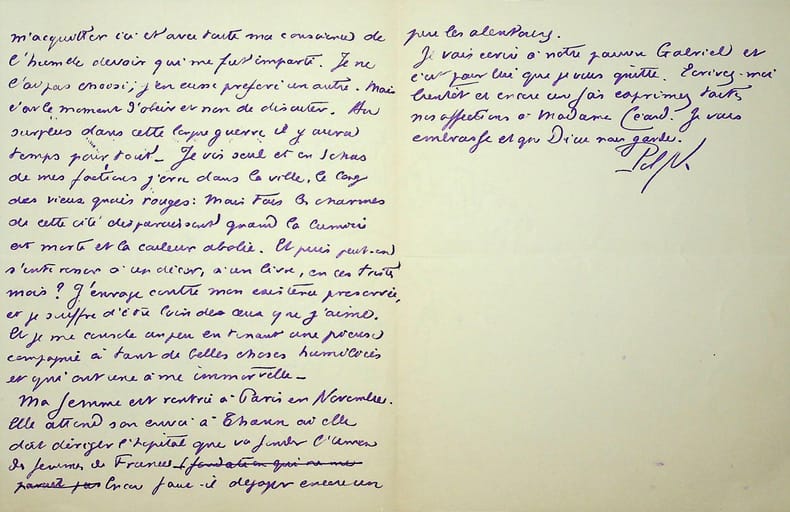 m'acquitter ici et avec toute ma conscience de
l'humble devoir qui me fut imparti. Je ne
l'ai pas choisi ; j'en eusse préféré un autre. Mais
c'est le moment d'obéir et non de discuter. Au
surplus dans cette longue guerre il y aura
temps pour tout_ Je vis seul et en dehors
de mes factions j'erre dans la ville, le long
des vieux quais rouges : Mais tous les charmes
de cette cité disparaissent quand la lumière
est morte et la couleur abolie. Et puis peut-on
s'intéresser à un décor, à un livre, en ces tristes
mois ? J'enrage contre mon existence préservée,
et je souffre d'être loin de ceux que j'aime.
Et je me console un peu en tenant une pieuse
compagnie à tant de belles choses humiliées
et qui ont une âme immortelle_
Ma femme est rentrée à Paris en Novembre.
Elle attend son envoi à Thann où elle
doit diriger l'hôpital que va fonder l'Union
des femmes de France (fondation qui ne me
parait pas Encore faut-il dégager encore un
peu les alentours.
Je vais écrire à notre pauvre Gabriel et
c'est pour lui que je vous quitte. Ecrivez-moi
bientôt et encore un fois exprimez toutes
nos affections à Madame Céard. Je vous
embrasse et que Dieu nous garde.